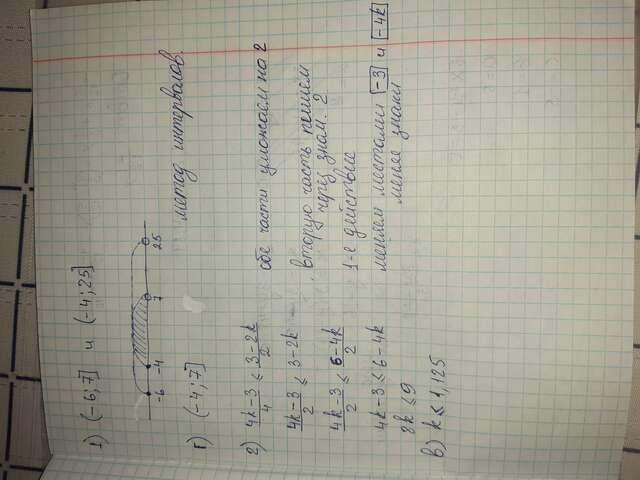 1) (-6;7] и (-4;25]
-6 -4 7 25
метод интервалов.
г) (-4;7]
2) 4k-3/4 ≤ 3-2k/2 обе части умножаем на 2
4k-3/2 ≤ 3-2k , вторую часть пишем через знам. 2
4k-3/2 ≤ 6-4k/2 1-е действие
4k-3 ≤ 6-4k меняем местами -3 и -4k
8k ≤ 9 меняе знаки
в) k ≤ 1,125